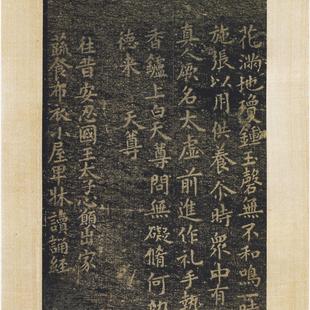 花滿地瓊鍾玉磬無不和鳴一時
施張以用供養尒時衆中有
真人厥名太虛前進作礼手執
香鑪上白天尊問無礙脩何功
德来　天尊
往昔安忍國王太子心願出家
蔬食布衣小屋畢牀讀誦經